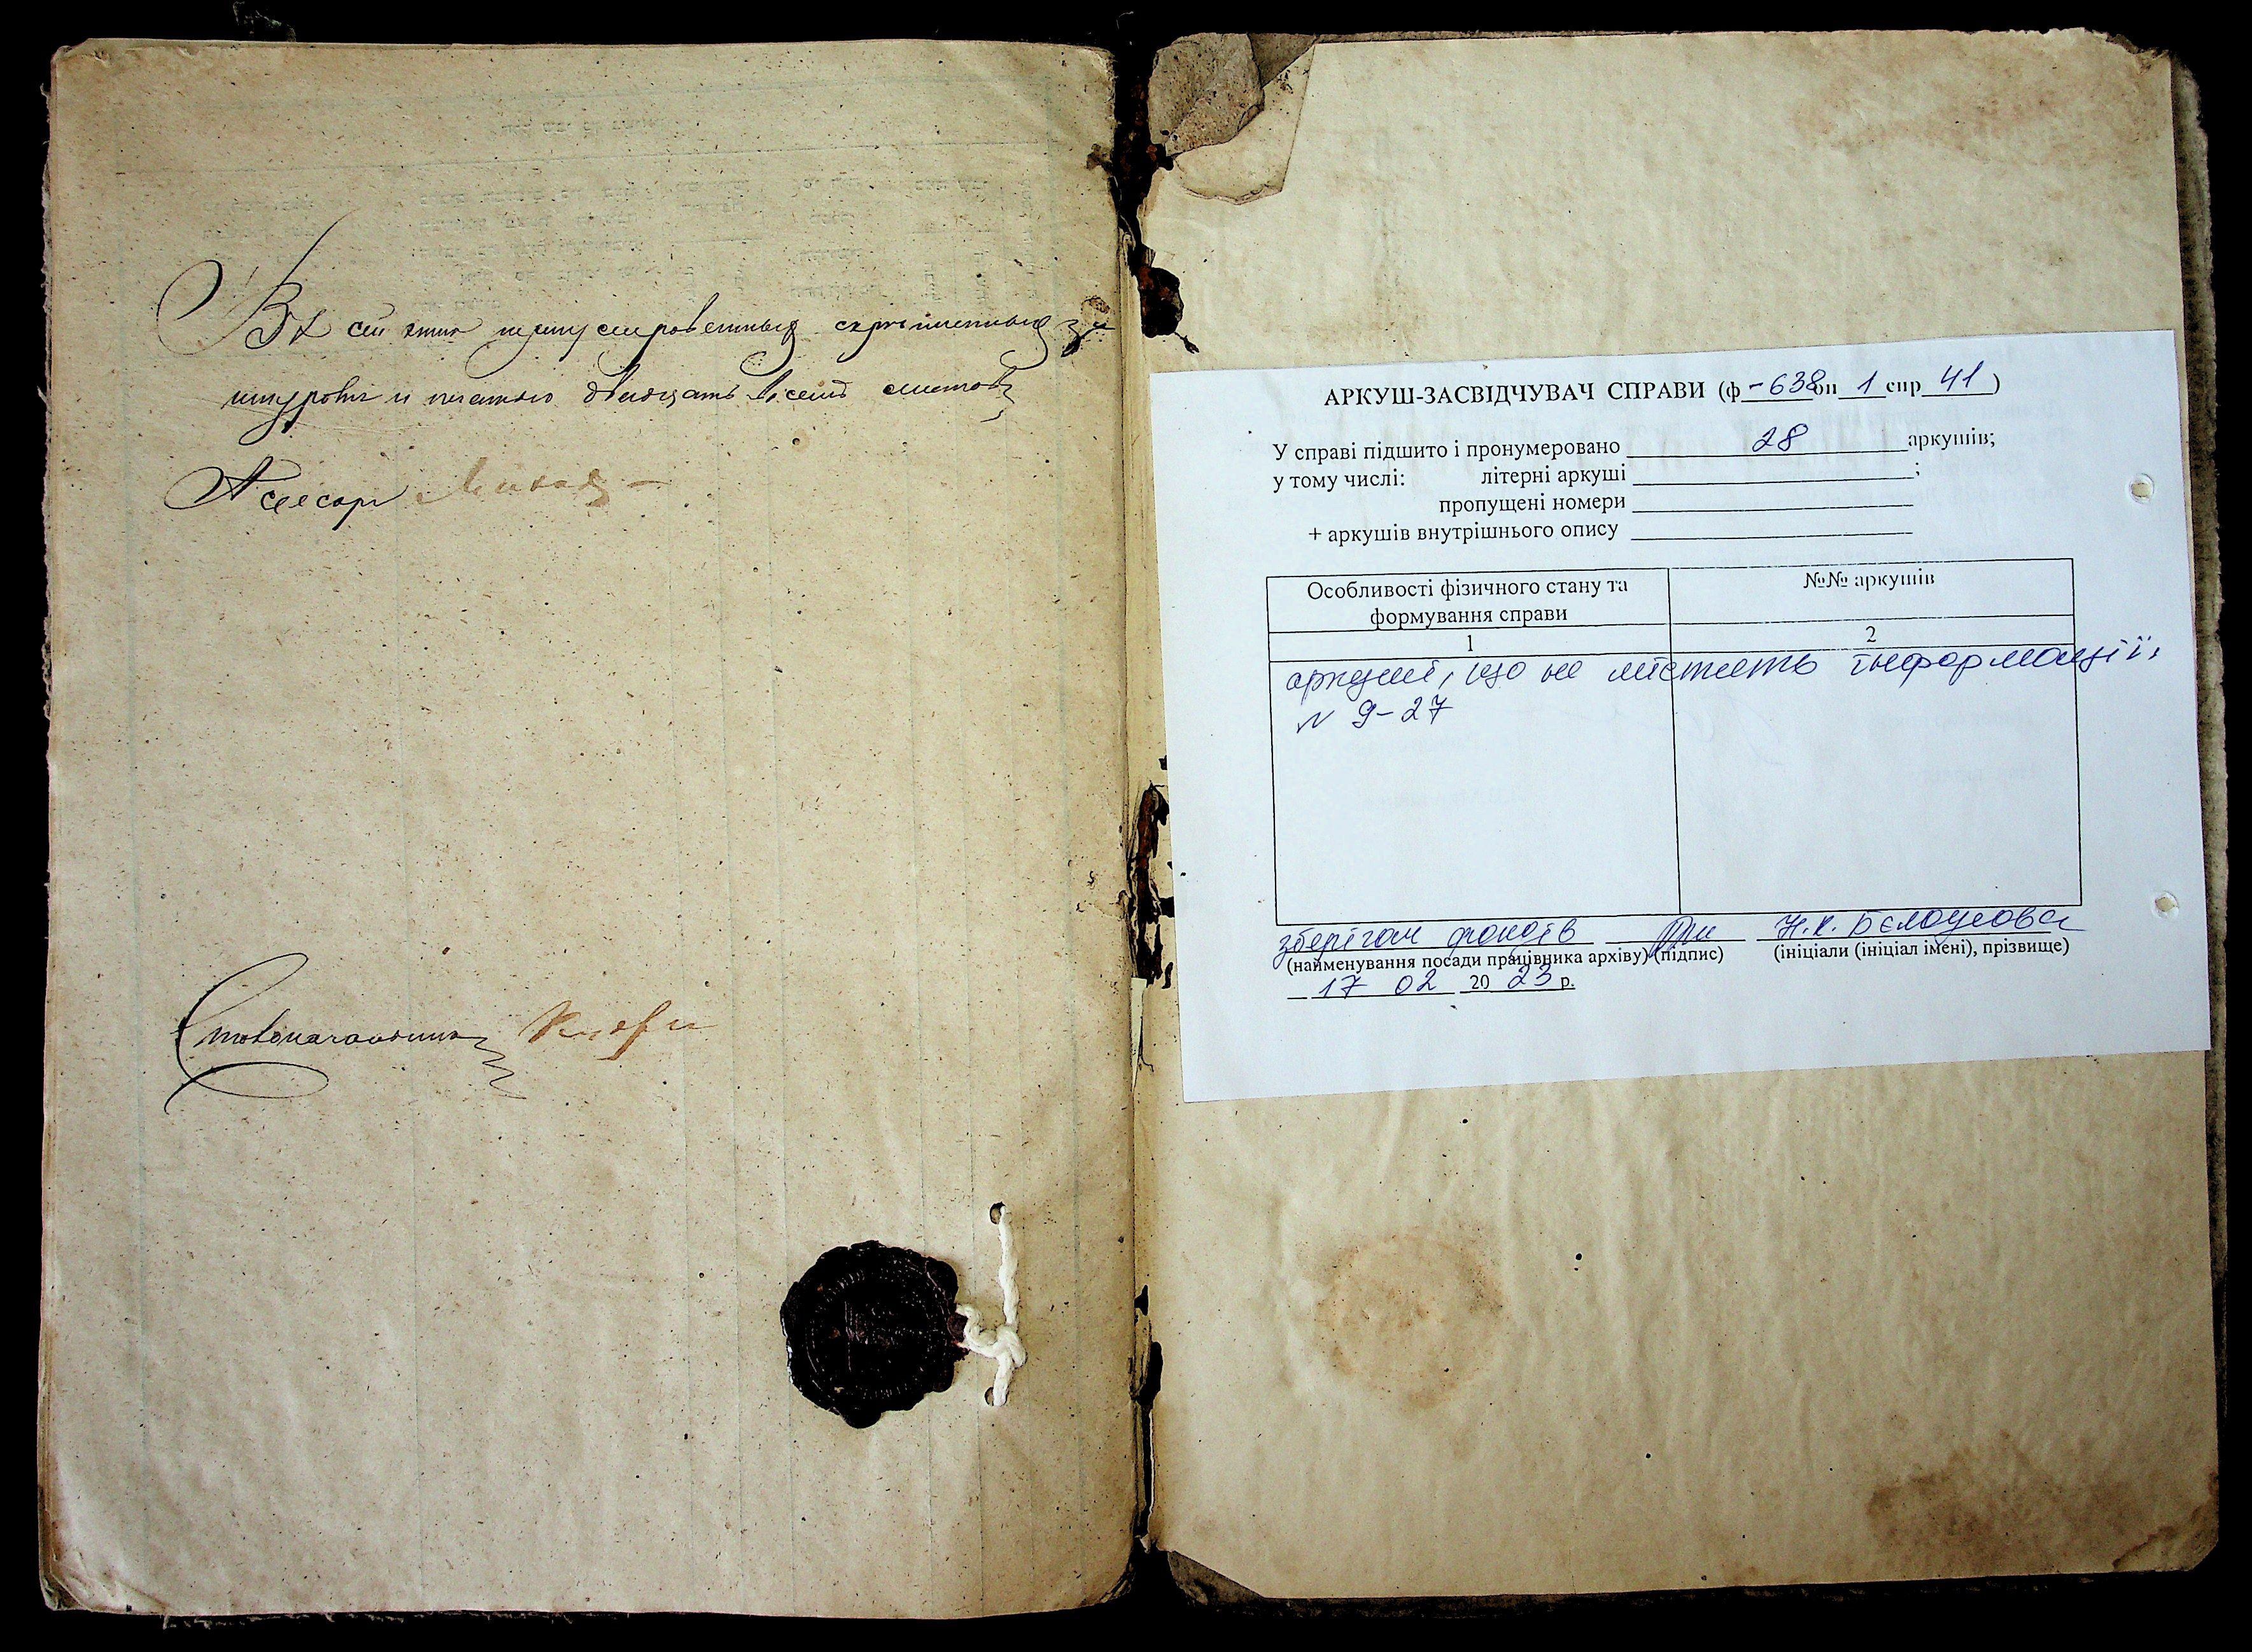 Въ сей книге нумерованныхъ скрепленныхъ за
шнуромъ и печатью двадцать восемь листовъ
Асессоръ
Столоначальникъ
АРКУШ-ЗАСВІДЧУВАЧ СПРАВИ (ф -638 оп 1 спр 41)
У справі підшито і пронумеровано 28 аркушів;
у тому числі: літерні аркуші ;
пропущені номери
+ аркушів внутрішнього опису
Особливості фізичного стану та формування справи
№№ аркушів
1
2
аркуші, що не містять інформації,
N 9-27
зберігач фондів Н.К.
(найменування посади працівника архіву) (підпис) (ініціали (ініціал імені), прізвище)
17 02 2023 р.